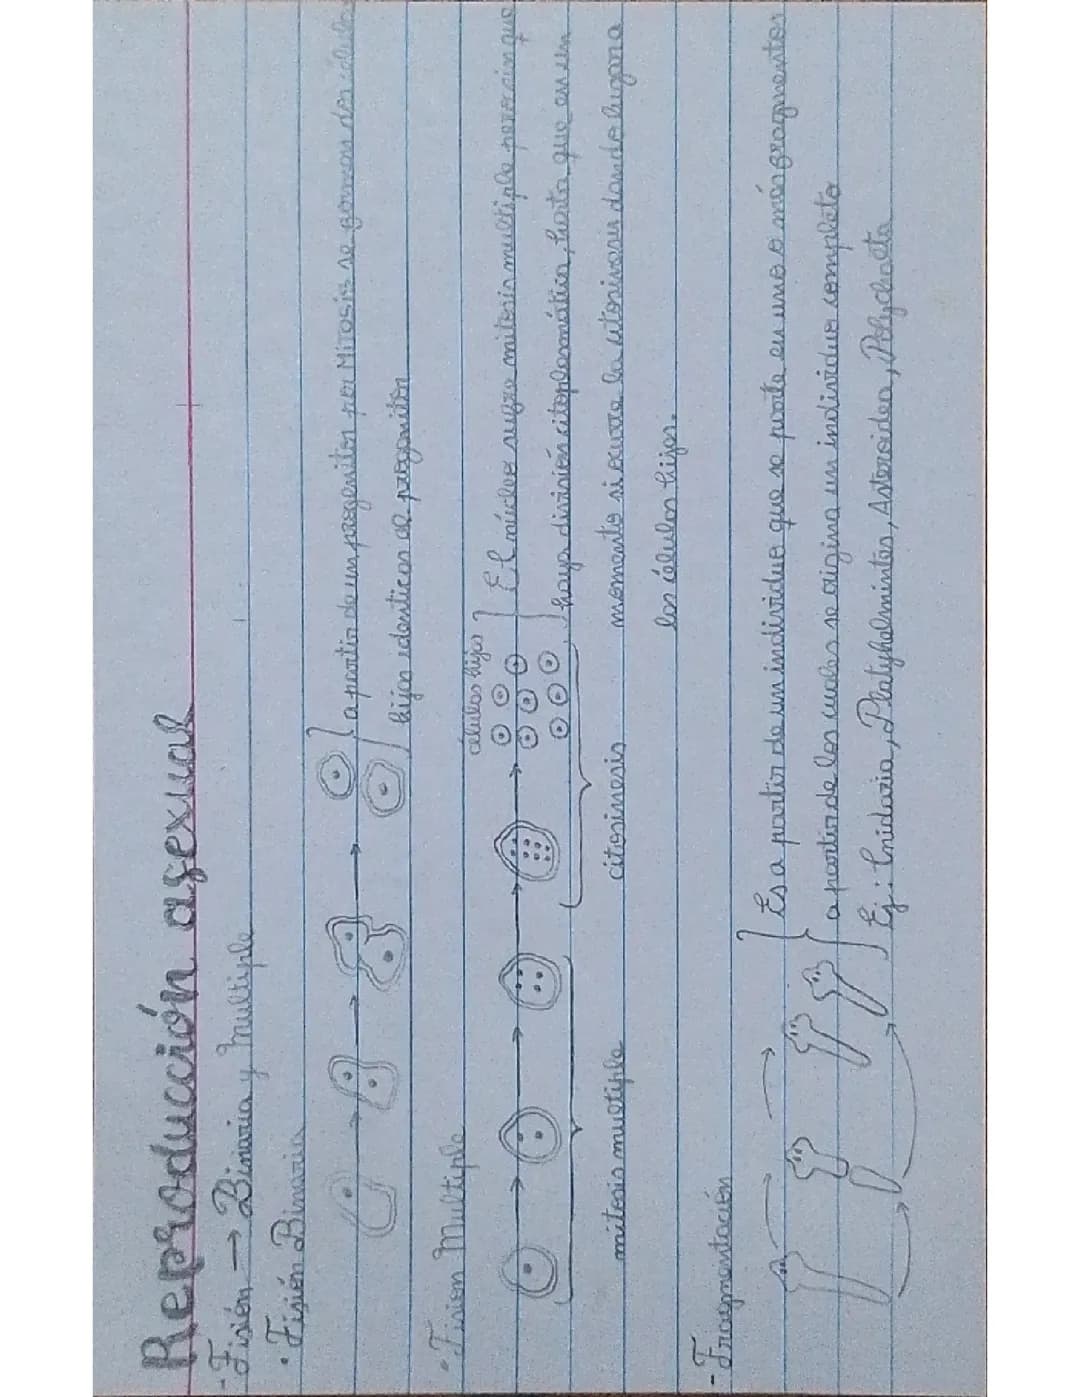 Reproducción asexual
- Fisión → Binaria y Multiple
· Fisión Binaria
a partir de un progenitor por Mitosis se forman dos células
hijas identicas al progenitor
· Fision Multiple
células hijas
El núcleo sufre mitosis multiple pero sin que
haya división citoplasmática, hasta que en un
mitosis multiple
citosinesis
momento si ocurre la citosinesis dando lugar a
las células hijas.
- Fragmentación
Es a partir de un individuo que se parte en uno o más fragmentos
a partir de los cuales se origina un individuo completo
Ej: Cnidaria, Platyhelmintes, Asteroidea, Polychaeta